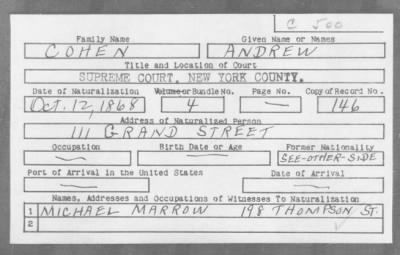 C 500
Family Name Given Name or Names
COHEN ANDREW
Title and Location of Court
SUPREME COURT. NEW YORK COUNTY.
Date of Naturalization Volume or Bundle No. Page No. Copy of Record No.
Oct. 12, 1868 4 — 146
Address of Naturalized Person
111 GRAND STREET
Occupation Birth Date or Age Former Nationality
— — SEE-OTHER-SIDE
Port of Arrival in the United States Date of Arrival
— —
Names, Addresses and Occupations of Witnesses To Naturalization
1 MICHAEL MARROW 198 THOMPSON ST.
2